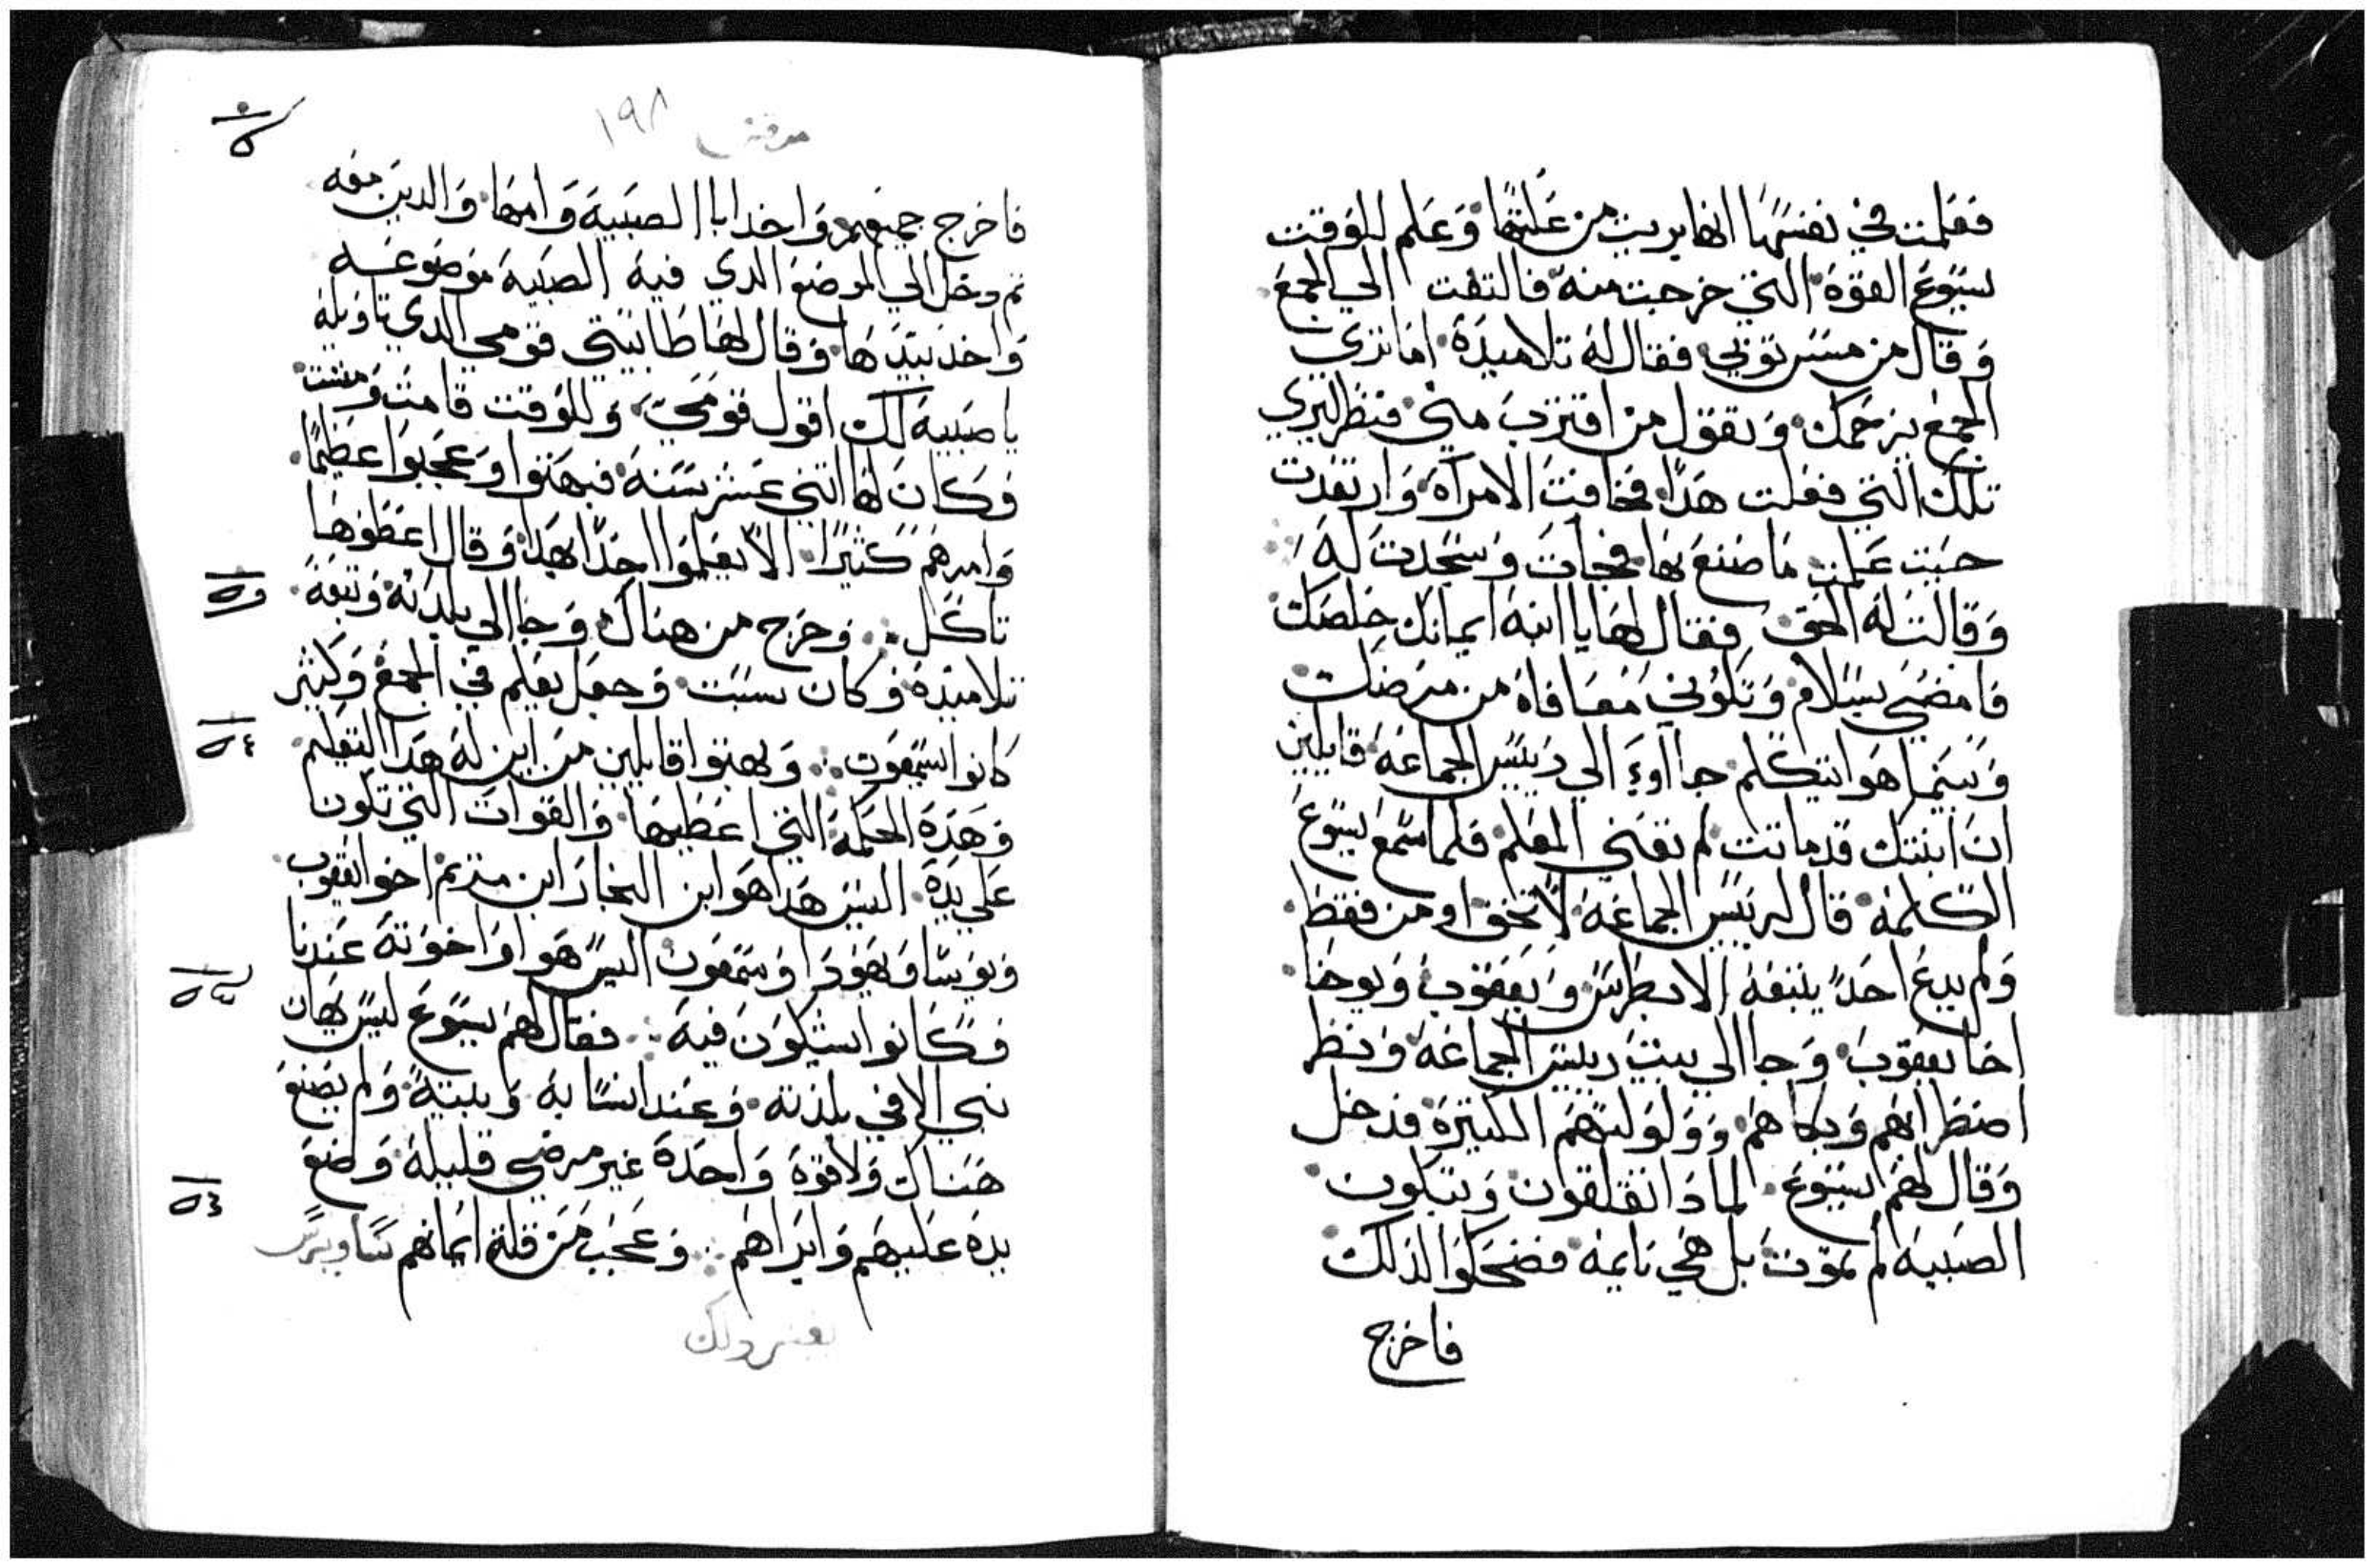 فعلمت في نفسها انها بريت من علتها وعلم للوقت
يسوع القوة التي خرجت منه فالتفت الي الجمع
وقال من مس ثوبي فقال له تلاميذه اما تري
الجمع يزحمك وتقول من اقترب مني فنظر ليري
تلك التي فعلت هدا فخافت الامراة وارتعدت
حيت علمت ما صنع بها فجات وسجدت له
وقالت له الحق فقال لها يا ابنه ايمانك خلصك
فامضي بسلام وتكوني معافاه من مرضك
وبينما هوا يتكلم جااوء الي رييس الجماعه قايلين
ان ابنتك قد ماتت لم تعني المعلم فلما سمع يسوع
الكلمه قال لرييس الجماعه لا تخف اومن فقط
ولم يدع احدا يتبعه الا بطرس ويعقوب ويوحنا
اخا يعقوب وجا الي بيت رييس الجماعه ونظر
اضطرابهم وبكاهم وولولتهم الكتيرة فدخل
وقال لهم يسوع لمادا تقلقون وتبكون
الصبيه لم تموت بل هي نايمه فضحكوا لذلك
فاخرج
مرقس ١٩٨
فاخرج جميعهم واخد ابا الصبية وامها والدين معه
تم دخل الي الموضع الدي فيه الصبية موضوعه
واخد بيدها وقال لها طاليتي قومي الدي تاويله
يا صبيه لك اقول قومي وللوقت قامت ومشت
وكان لها اتني عشر سنه فبهتوا وعجبوا عظيما
وامرهم كتيرا الا يعلموا احدا بهدا وقال اعطوها
تاكل وخرج من هناك وجا الي بلدته وتبعه
تلاميذه وكان سبت وجعل يعلم في الجمع وكتير
كانوا يسمعون وبهتوا قايلين من اين له هدا التعليم
وهده الحكمه التي اعطيها والقوات التي تكون
علي يده اليس هدا هوا ابن النجار ابن مريم اخوا يعقوب
ويوسا ويهودا وسمعون اليس هوا واخوته عندنا
وكانوا يشكون فيه فقال لهم يسوع ليس يهان
نبي الا في بلدته وعند انسابه وبيته ولم يصنع
هناك ولا قوة واحدة غير مرضي قليله وضع
يده عليهم وابراهم وعجب من قلة ايمانهم